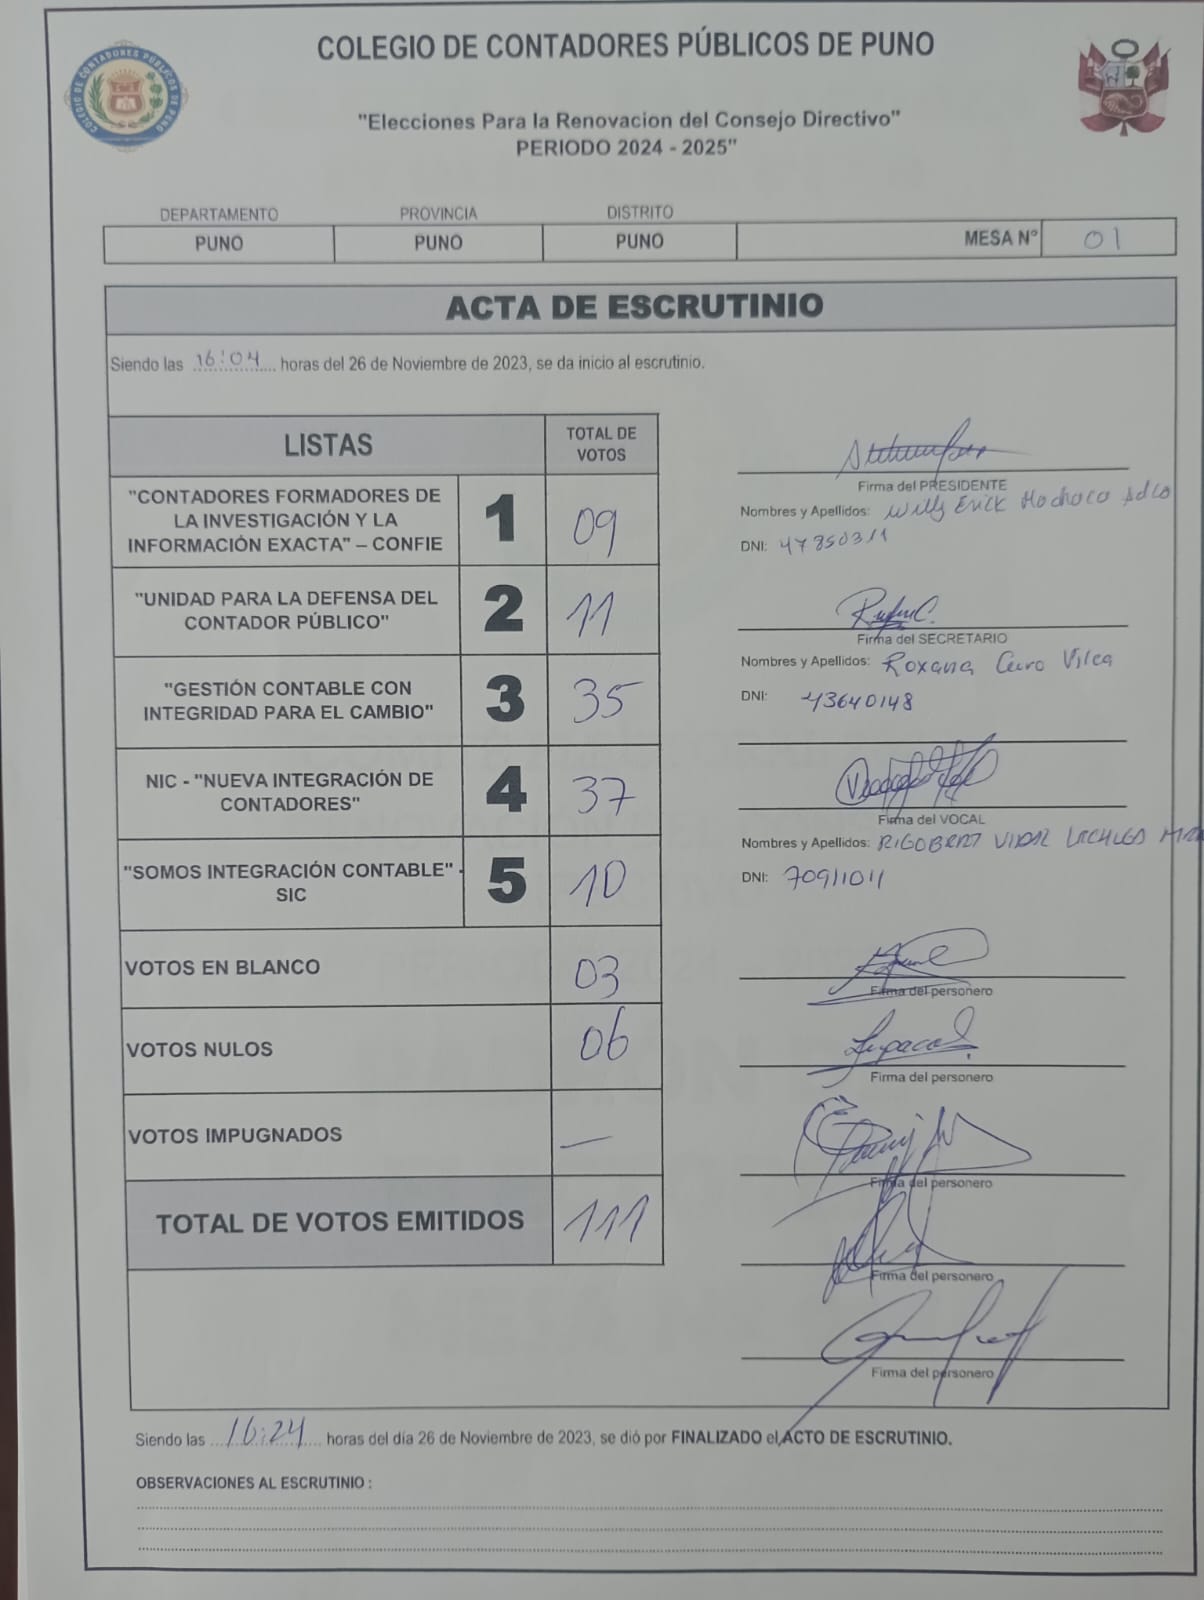 COLEGIO DE CONTADORES PÚBLICOS DE PUNO
COLEGIO DE CONTADORES PÚBLICOS DE PUNO
"Elecciones Para la Renovacion del Consejo Directivo"
PERIODO 2024 - 2025"
DEPARTAMENTO PROVINCIA DISTRITO
PUNO PUNO PUNO MESA N° 01
ACTA DE ESCRUTINIO
Siendo las 16:04 horas del 26 de Noviembre de 2023, se da inicio al escrutinio.
LISTAS
TOTAL DE
VOTOS
"CONTADORES FORMADORES DE
LA INVESTIGACIÓN Y LA
INFORMACIÓN EXACTA" – CONFIE
1 09
"UNIDAD PARA LA DEFENSA DEL
CONTADOR PÚBLICO"
2 11
"GESTIÓN CONTABLE CON
INTEGRIDAD PARA EL CAMBIO"
3 35
NIC - "NUEVA INTEGRACIÓN DE
CONTADORES"
4 37
"SOMOS INTEGRACIÓN CONTABLE" -
SIC
5 10
VOTOS EN BLANCO 03
VOTOS NULOS 06
VOTOS IMPUGNADOS —
TOTAL DE VOTOS EMITIDOS 111
Firma del PRESIDENTE
Nombres y Apellidos: Willy Erick
DNI: 47850311
Firma del SECRETARIO
Nombres y Apellidos: Roxana Vilca
DNI: 43640148
Firma del VOCAL
Nombres y Apellidos: RIGOBERT VIDAL
DNI: 70911011
Firma del personero
Firma del personero
Firma del personero
Firma del personero
Firma del personero
Siendo las 16:24 horas del día 26 de Noviembre de 2023, se dió por FINALIZADO el ACTO DE ESCRUTINIO.
OBSERVACIONES AL ESCRUTINIO :